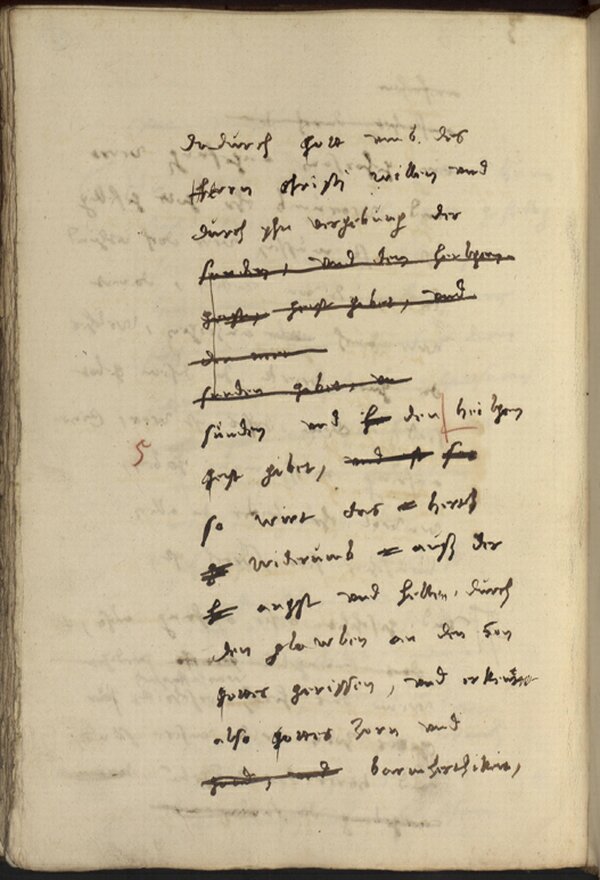 dadurch gott umb des
Herrn Christi willen und
durch yhn vergebung der
sunden, und den heiligen
geist, geist gibet, und
sunden gibet,
sunden und den heiligen
geist gibet, und ist
so wirt das hertz
widerumb auß der
angst und hellen, durch
den glawben an den Son
gottes gerissen, und erkennet
also gottes Zorn und
gnad, und barmhertzikeit,
5